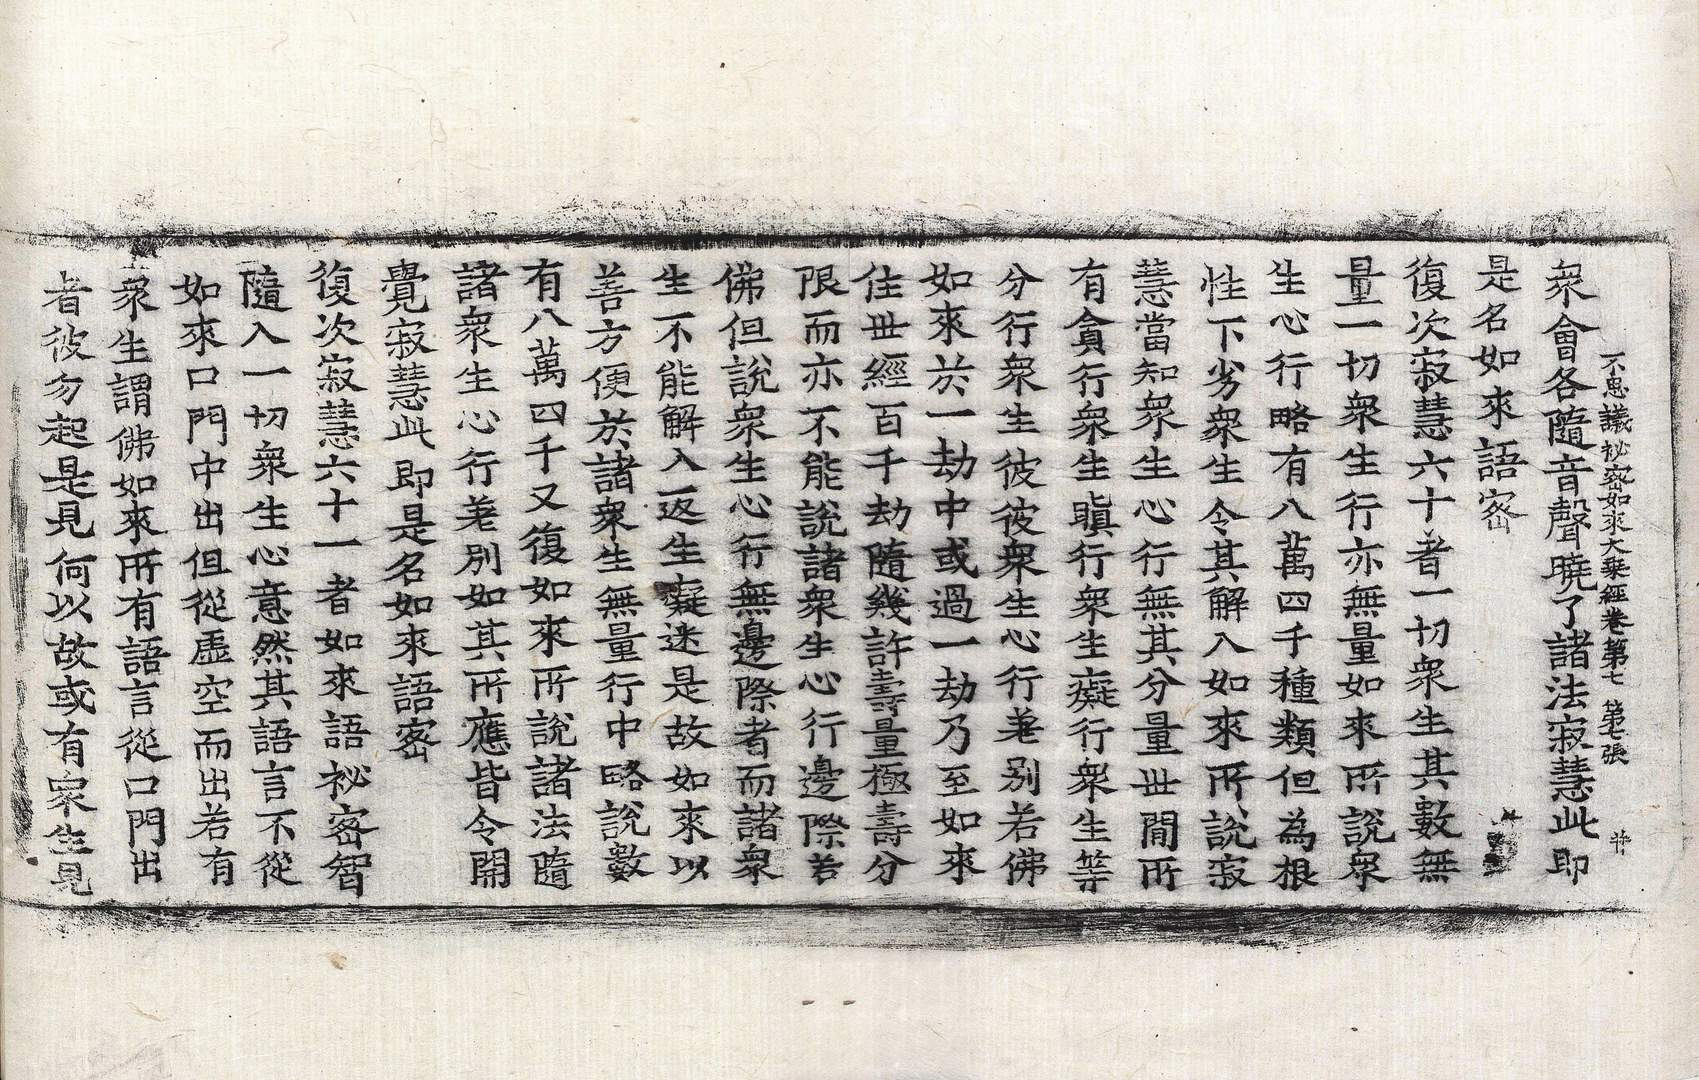 不思議祕密如來大乘經卷第七　第七張　井
衆會各隨音聲曉了諸法寂慧此即
是名如來語密
復次寂慧六十者一切衆生其數無
量一切衆生行亦無量如來所說衆
生心行略有八萬四千種類但為根
性下劣衆生令其解入如來所說寂
慧當知衆生心行無其分量世間所
有貪行衆生瞋行衆生癡行衆生等
分行衆生彼彼衆生心行差别若佛
如來於一劫中或過一劫乃至如來
住世經百千劫隨幾許壽量極壽分
限而亦不能說諸衆生心行邊際若
佛但說衆生心行無邊際者而諸衆
生不能解入返生癡迷是故如來以
善方便於諸衆生無量行中略說數
有八萬四千又復如來所說諸法隨
諸衆生心行差別如其所應皆令開
覺寂慧此即是名如來語密
復次寂慧六十一者如來語祕密智
隨入一切衆生心意然其語言不從
如來口門中出但從虛空而出若有
衆生謂佛如來所有語言從口門出
者彼勿起是見何以故或有衆生見